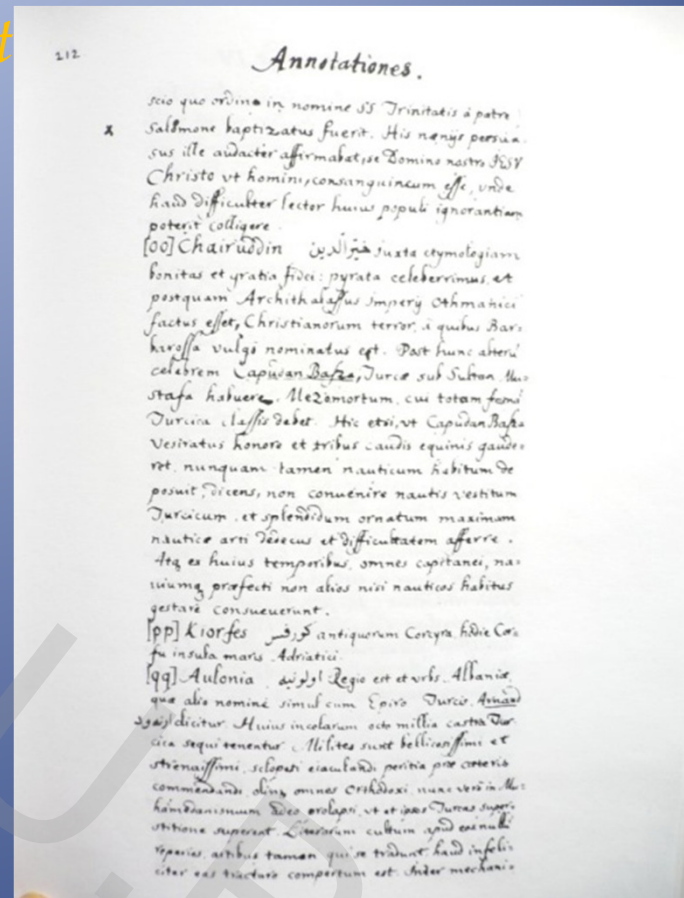 212
Annotationes.
scio quo ordine in nomine SS Trinitatis à patre
Salomone baptizatus fuerit. His nænijs persua-
sus ille audacter affirmabat, se Domino nostro IESV
Christo vt homini, consanguineum esse, vnde
haud difficulter lector huius populi ignorantiam
poterit colligere.
[oo] Chairuddin خيرالدين juxta etymologiam
bonitas et gratia fidei: pyrata celeberrimus, et
postquam Archithalassus Imperij Othmanici
factus esset, Christianorum terror, à quibus Bar-
barossa vulgò nominatus est. Post hunc alterū
celebrem Capudan Basza, Turcæ sub Sultan Mu-
stafa habuere Mezomortum, cui totam famā
Turcica classis debet. Hic etsi, vt Capudan Basza
Vesiratus honore et tribus caudis equinis gaude-
ret, nunquam tamen nauticum habitum de
posuit, dicens, non conuenire nautis vestitum
Turcicum, et splendidum ornatum maximam
nauticæ arti dedecus et difficultatem afferre.
Atq ex huius temporibus, omnes capitanei, na-
uiumq præfecti non alios nisi nauticos habitus
gestare consueuerunt.
[pp] Kiorfes كورفس antiquorum Corcyra, hodie Cor-
fu insula maris Adriatici.
[qq] Aulonia اولونيه Regio est et vrbs Albaniæ,
quæ alio nomine simul cum Epiro Turcis Arnaud
ارنود dicitur. Huius incolarum octo millia castra Tur
cica sequi tenentur. Milites sunt bellicosissimi et
strenuissimi, sclopeti eiaculandi peritia præ cæteris
commendandi, olim omnes Orthodoxi, nunc verò in Mu-
hamedanismum adeo prolapsi, vt et ipsos Turcas super-
stitione superent. Literarum cultum apud eos nullū
reperies, artibus tamen qui se tradunt, haud infeli-
citer eas tractare compertum est. Inter mechani-